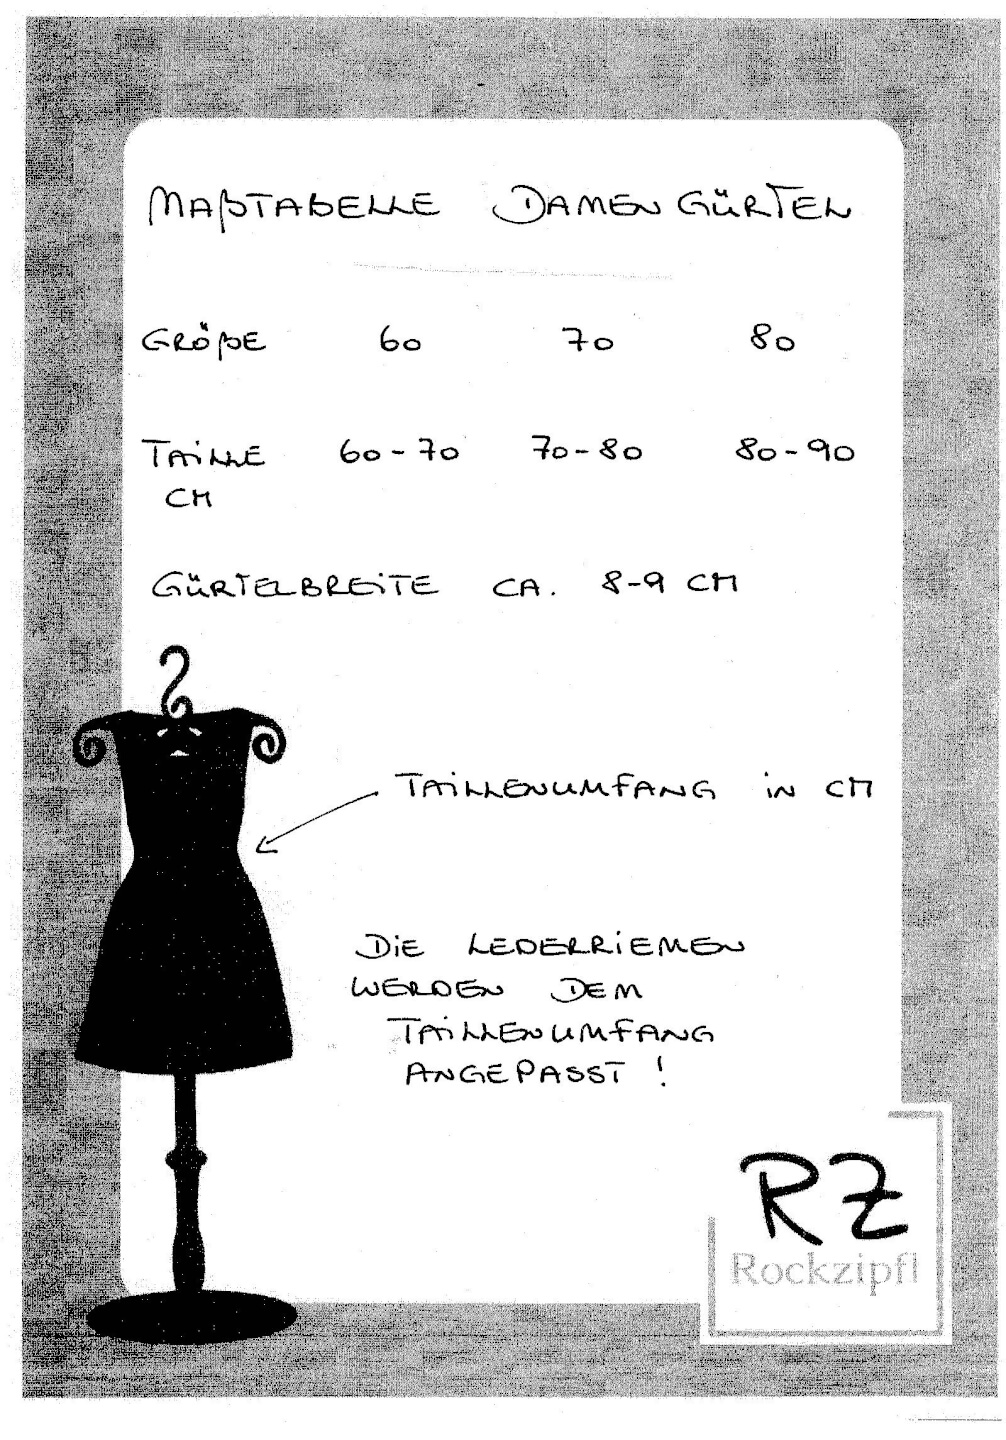 MAßTABELLE DAMENGÜRTEL
GRÖßE 60 70 80
TAiLLE 60-70 70-80 80-90
CM
GÜRTELBREiTE CA. 8-9 CM
TAiLLENUMFANG iN CM
DiE LEDERRiEMEN
WERDEN DEM
TAiLLENUMFANG
ANGEPASST !
RZ
Rockzipfl